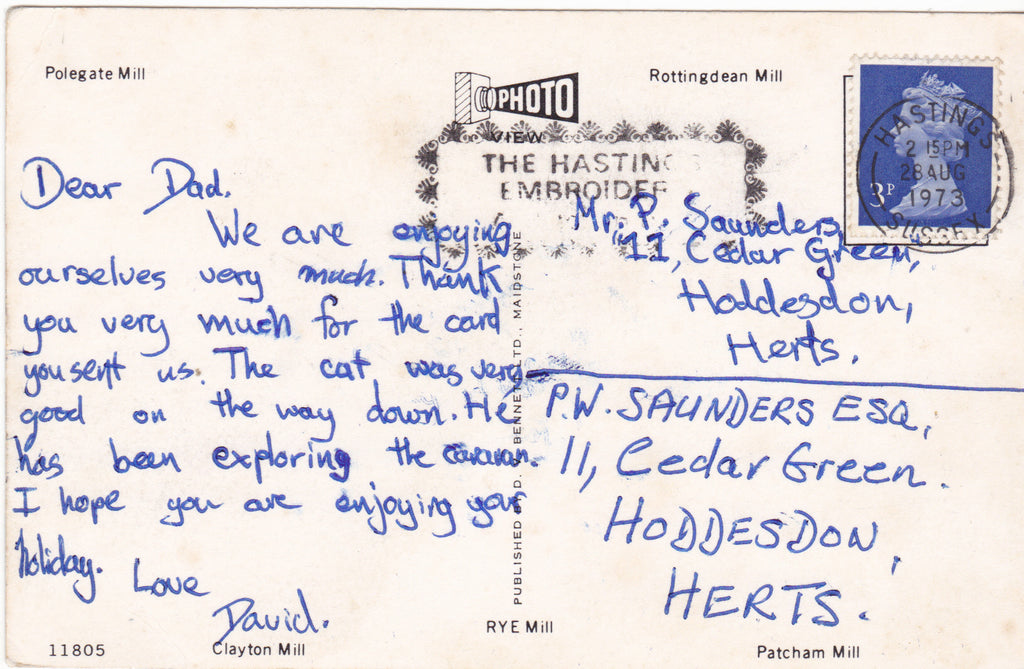 Polegate Mill
PHOTO
Rottingdean Mill
HASTINGS
2 15PM
28 AUG
1973
SUSSEX
3P
VIEW
THE HASTING
EMBROIDER
Dear Dad.
We are enjoying
ourselves very much. Thank
you very much for the card
you sent us. The cat was very
good on the way down. He
has been exploring the caravan.
I hope you are enjoying your
holiday.
Love
David.
Mr. P. Saunders,
11, Cedar Green,
Hoddesdon,
Herts.
P.W. SAUNDERS ESQ,
11, Cedar Green.
HODDESDON,
HERTS.
PUBLISHED BY D. BENNET LTD., MAIDSTONE
RYE Mill
11805
Clayton Mill
Patcham Mill